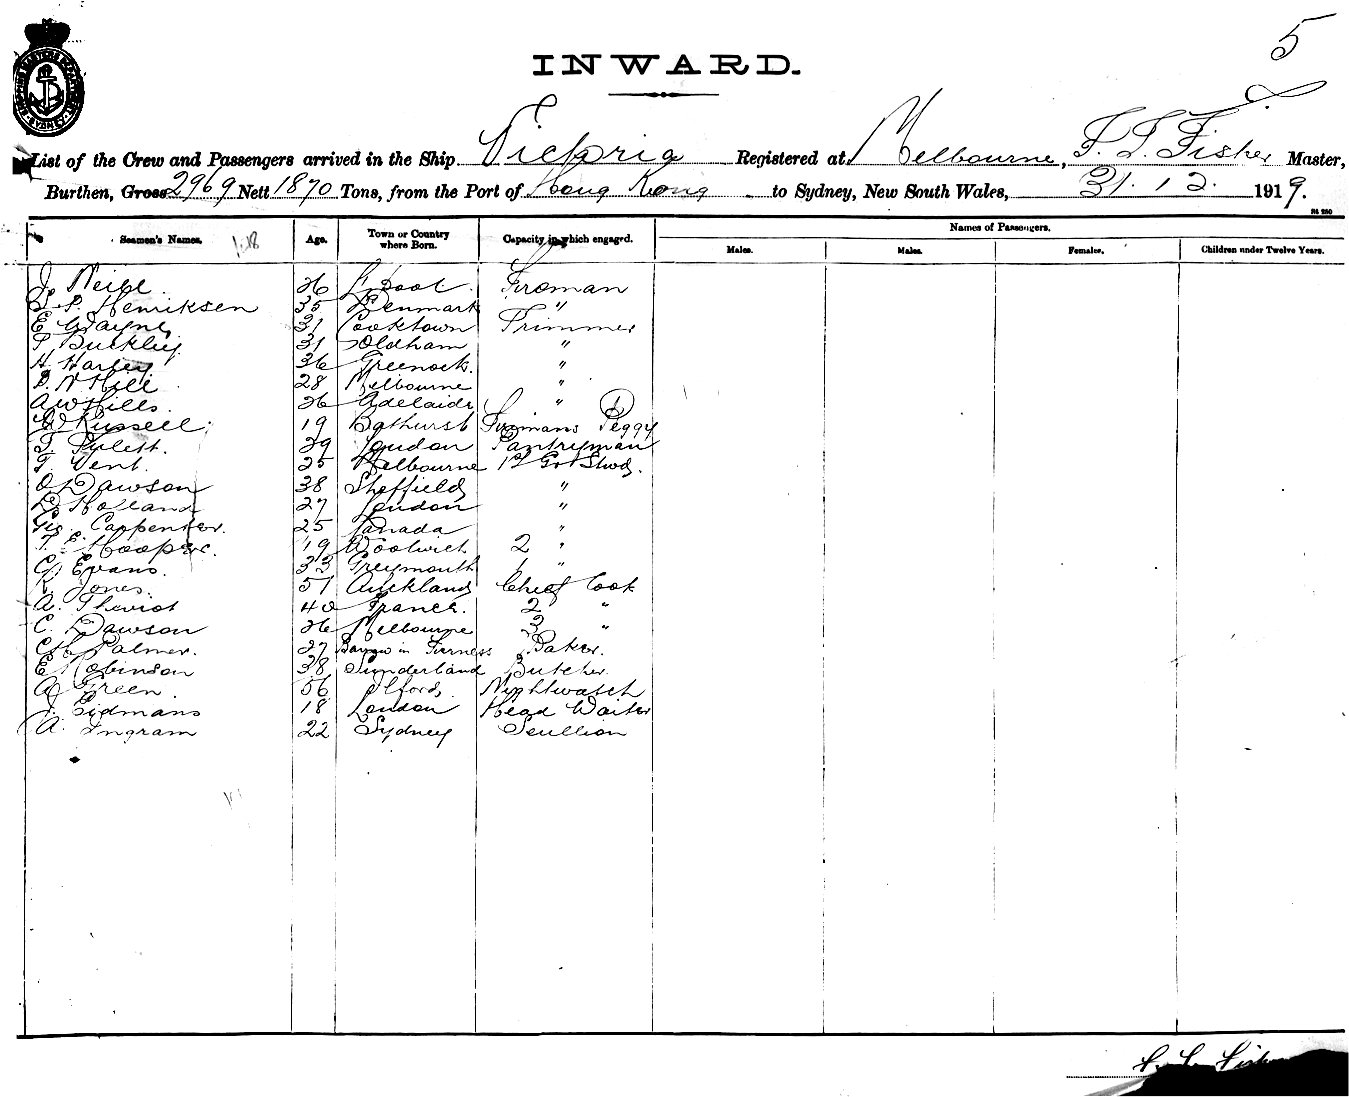 5
SHIPPING MASTERS DEPARTMENT SYDNEY
INWARD.
List of the Crew and Passengers arrived in the Ship Victoria Registered at Melbourne, F. L. Fisher Master,
Burthen, Gross 2969 Nett 1870 Tons, from the Port of Hong Kong to Sydney, New South Wales, 31. 12. 1919.
Seamen's Names. Age. Town or Country where Born. Capacity in which engaged. Names of Passengers.
Males. Males. Females. Children under Twelve Years.
J. 26 L'pool. Fireman
Henriksen 35 Denmark "
E Wayne 31 Cooktown Trimmer
Buckley 31 Oldham "
H. Harley 36 Greenock. "
Hill 28 Melbourne "
A W Hills. 26 Adelaide "
Russell 19 Bathurst Firemans Peggy
29 London Pantryman
Vent. 25 Melbourne 1st
Dawson 38 Sheffield "
Holland 27 London "
Geo. Carpenter. 25 Canada "
T. E. Hooper. 19 Woolwich 2 "
Evans. 33 Greymouth 1 "
Jones. 51 Auckland Chief Cook
A. 40 France. 2 "
C. Dawson 26 Melbourne 3 "
Palmer. 27 Barrow in Furness Baker.
E Robinson 38 Sunderland Butcher.
A Green. 56 Ilford. Nightwatch
J. Eidmans 18 London Head Waiter
A. Ingram 22 Sydney Scullion